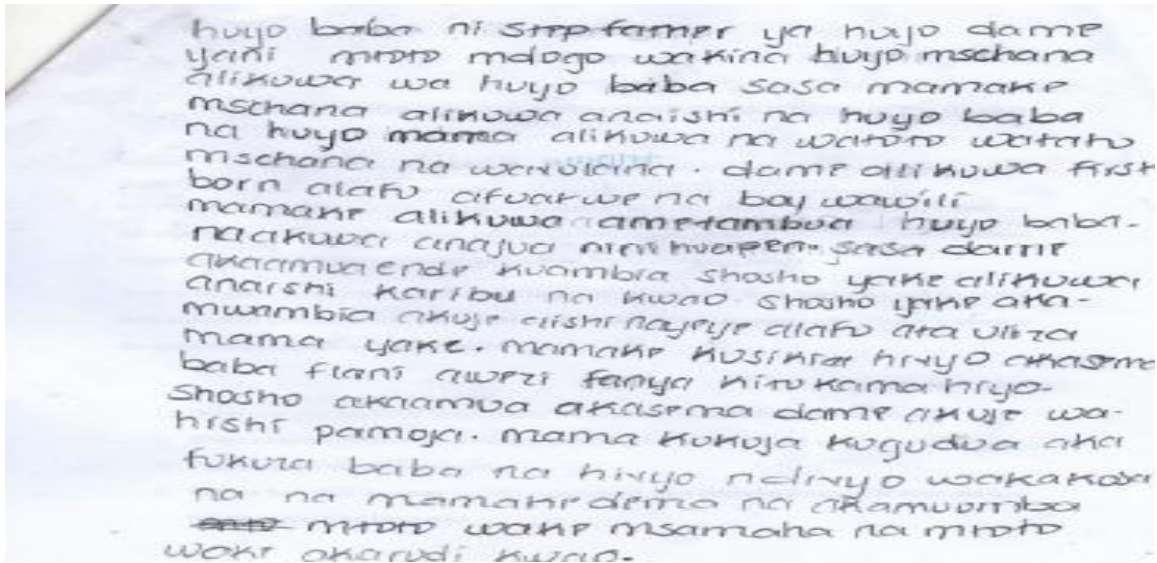 huyo baba ni step famer ya huyo dame
yani mtoto mdogo wakina huyo mschana
alikuwa wa huyo baba sasa mamake
mschana alikuwa anaishi na huyo baba
na huyo mama alikuwa na watoto watatu
mschana na wavulana. dame alikuwa first
born alafu afuatwe na boy wawili
mamake alikuwa ametambua huyo baba.
naakuwa anajua nini huapen. sasa dame
akaamua ende kuambia shosho yake alikuwa
anaishi karibu na kwao. shosho yake aka-
mwambia akuje aishi nayeye alafu ata uliza
mama yake. mamake kusikia hivyo akasema
baba flani awezi fanya kitu kama hiyo.
Shosho akaamua akasema dame akuje wa-
hishi pamoja. mama kukuja kugudua aka
fukuza baba na hivyo ndivyo wakakosa
na na mamake dema na akamuomba
mtoto wake msamaha na mtoto
wake akarudi kwao.